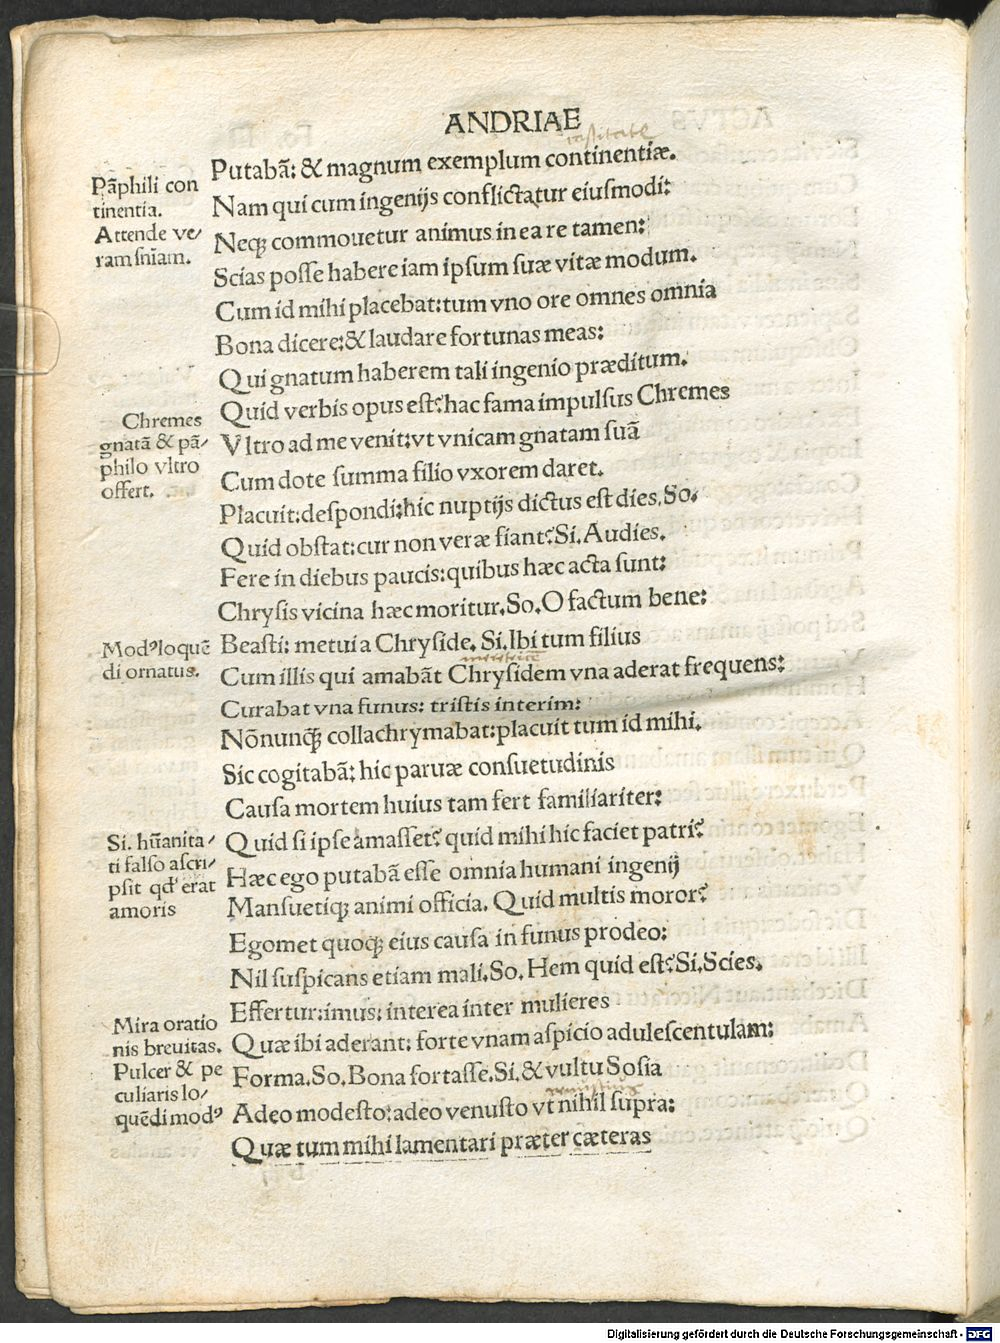 ANDRIAE
Putabã: & magnum exemplum continentiæ.
Nam qui cum ingenijs conflictatur eiusmodi:
Neqꝫ commouetur animus in ea re tamen:
Scias posse habere iam ipsum suæ vitæ modum.
Cum id mihi placebat: tum vno ore omnes omnia
Bona dicere: & laudare fortunas meas:
Qui gnatum haberem tali ingenio præditum.
Quid verbis opus est? hac fama impulsus Chremes
Vltro ad me venit: vt vnicam gnatam suã
Cum dote summa filio vxorem daret.
Placuit: despondi: hic nuptijs dictus est dies. So.
Quid obstat: cur non veræ fiant? Si. Audies.
Fere in diebus paucis: quibus hæc acta sunt:
Chrysis vicina hæc moritur. So. O factum bene:
Beasti: metui a Chryside. Si. Ibi tum filius
Cum illis qui amabãt Chrysidem vna aderat frequens:
Curabat vna funus: tristis interim:
Nõnunqꝫ collachrymabat: placuit tum id mihi.
Sic cogitabã: hic paruæ consuetudinis
Causa mortem huius tam fert familiariter:
Quid si ipse amasset? quid mihi hic faciet patri?
Hæc ego putabã esse omnia humani ingenij
Mansuetiqꝫ animi officia. Quid multis moror?
Egomet quoqꝫ eius causa in funus prodeo:
Nil suspicans etiam mali. So. Hem quid est? Si. Scies.
Effertur: imus: interea inter mulieres
Quæ ibi aderant: forte vnam aspicio adulescentulam:
Forma. So. Bona fortasse. Si. & vultu Sosia
Adeo modesto: adeo venusto vt nihil supra:
Quæ tum mihi lamentari præter cæteras
Pãphili con
tinentia.
Attende ve/
ram sniam.
Chremes
gnatã & pã/
philo vltro
offert.
Modꝰ loquẽ
di ornatus.
Si. hũanita/
ti falso ascri/
psit qd' erat
amoris
Mira oratio
nis breuitas.
Pulcer & pe
culiaris lo/
quẽdi modꝰ
Digitalisierung gefördert durch die Deutsche Forschungsgemeinschaft - DFG